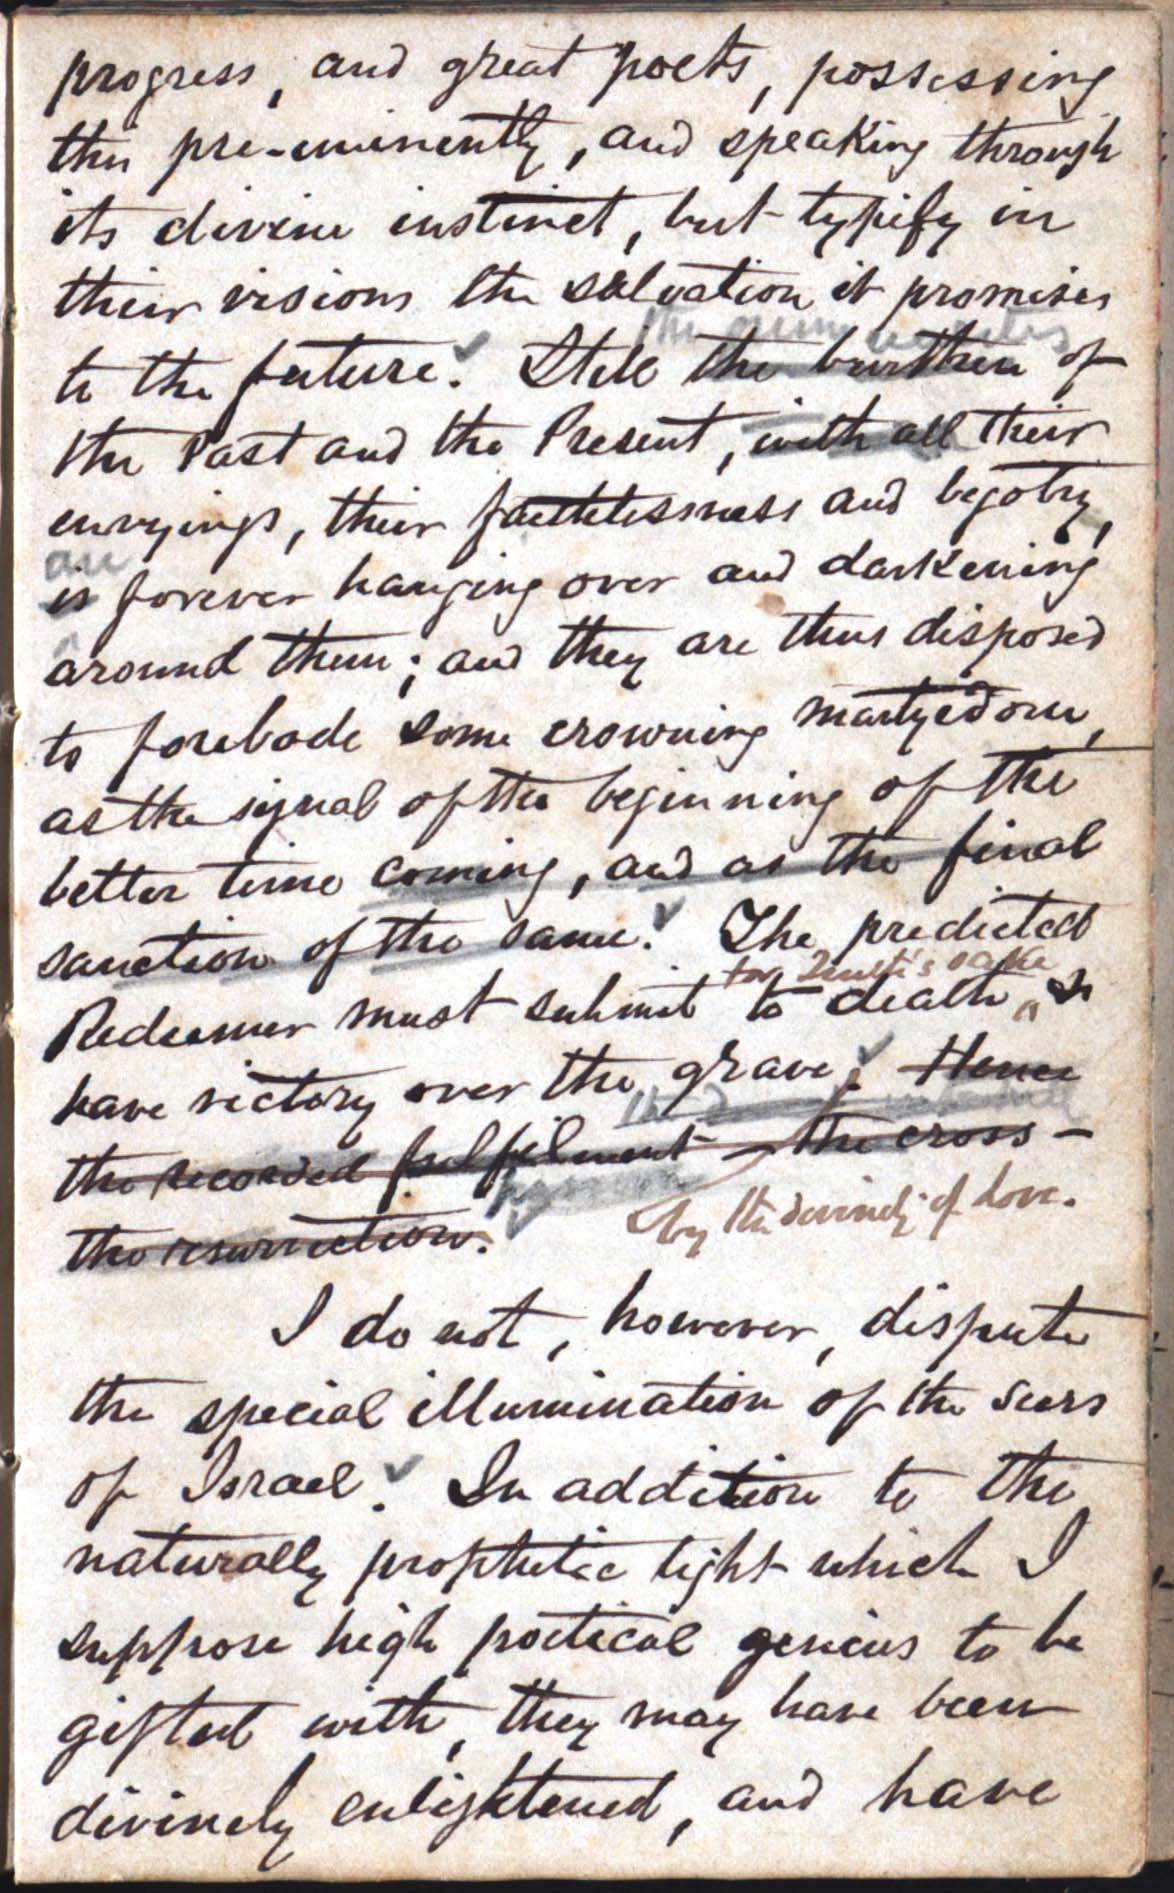 progress, and great poets, possessing
this pre-eminently, and speaking through
its divine instinct, but typify in
their visions the salvation it promises
to the future. Still the burthen of
the Past and the Present, with all their
envyings, their faithlessness and bigotry,
are
is forever hanging over and darkening
around them; and they are thus disposed
to forebode some crowning martyrdom,
as the signal of the beginning of the
better time coming, and as the final
sanction of the same. The predicted
for Truth's sake
Redeemer must submit to death, &
have victory over the grave. Hence
the recorded fulfilment – the cross –
by the divinity of Love.
the resurrection.
I do not, however, dispute
the special illumination of the seers
of Israel. In addition to the
naturally prophetic light which I
suppose high poetical genius to be
gifted with, they may have been
divinely enlightened, and have